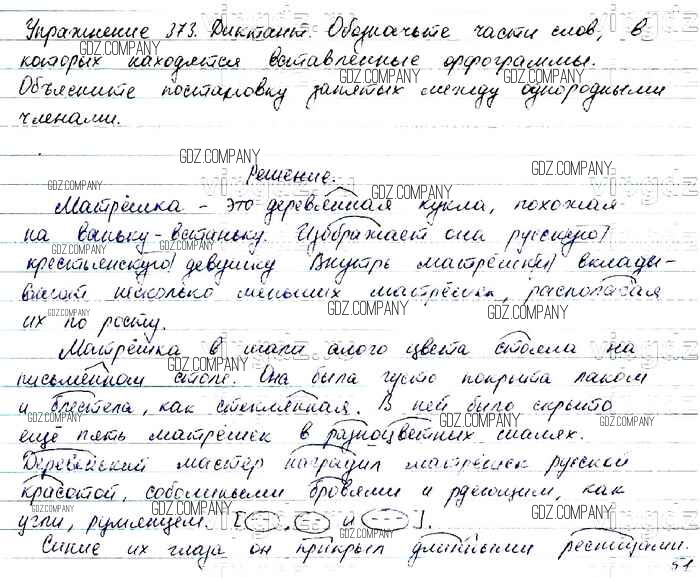 Упражнение 373. Диктант. Обозначьте части слов, в
которых находятся вставленные орфограммы.
Объясните постановку запятых между однородными
членами.
Решение.
Матрёшка - это деревянная кукла, похожая
на ваньку-встаньку. Изображает она русскую
крестьянскую девушку. Внутрь матрёшки вклады-
вают несколько меньших матрёшек, располагая
их по росту.
Матрёшка в шали алого цвета стояла на
письменном столе. Она была густо покрыта лаком
и блестела, как стеклянная. В ней было скрыто
ещё пять матрёшек в разноцветных шалях.
Деревенский мастер наградил матрёшек русской
красотой, соболиными бровями и рдеющим, как
угли, румянцем. [ , и ].
Синие их глаза он прикрыл длинными ресницами.
51
GDZ.COMPANY